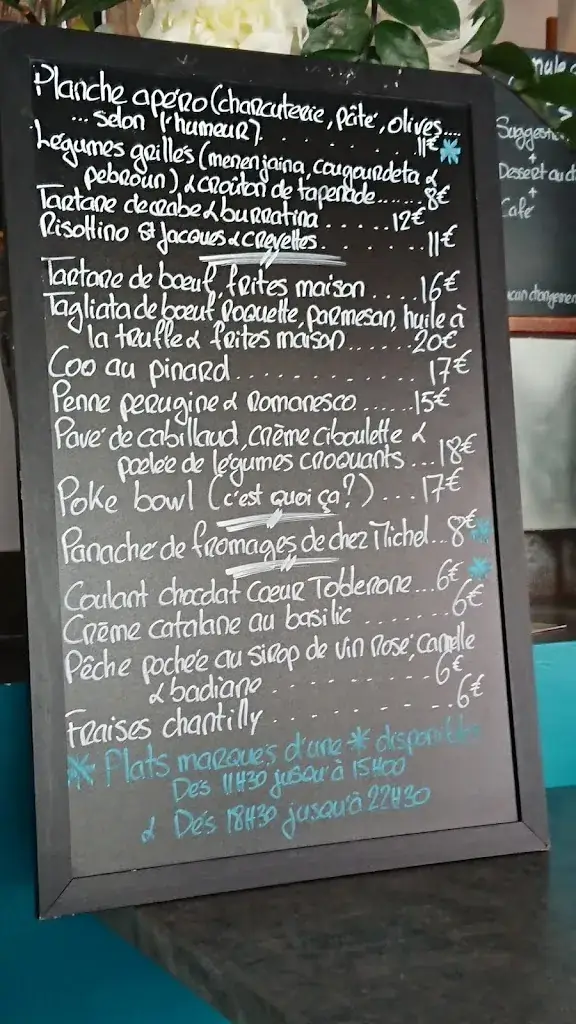 Planche apéro (charcuterie, pâté, olives....
... selon l'humeur). . . . . . . . 11€ *
Légumes grillés (merenjaina, cougourdeta &
pebroun) & croûton de tapenade...... 8€
Tartare de crabe & burratina . . . . . 12€
Risottino St Jacques & crevettes. . . . . . 11€
Tartare de bœuf, frites maison . . . . 16€
Tagliata de bœuf, roquette, parmesan, huile à
la truffe & frites maison...... 20€
Coq au pinard. . . . . . . . . . . . 17€
Penne perugine & Romanesco....... 15€
Pavé de cabillaud, crème ciboulette &
poêlée de légumes croquants ... 18€
Poke bowl (c'est quoi ça?) . . . . 17€
Panache de fromages de chez Michel.. 8€ *
Coulant chocolat Cœur Toblerone... 6€ *
Crème catalane au basilic . . . . . . . 6€
Pêche pochée au sirop de vin rosé, cannelle
& badiane . . . . . . . . . . . . 6€
Fraises chantilly . . . . . . . . . . . 6€
* Plats marqués d'une * disponibles
Dès 11H30 jusqu'à 15H00
& Dès 18H30 jusqu'à 22H30
Suggestion
+
Dessert au ch
+
Café